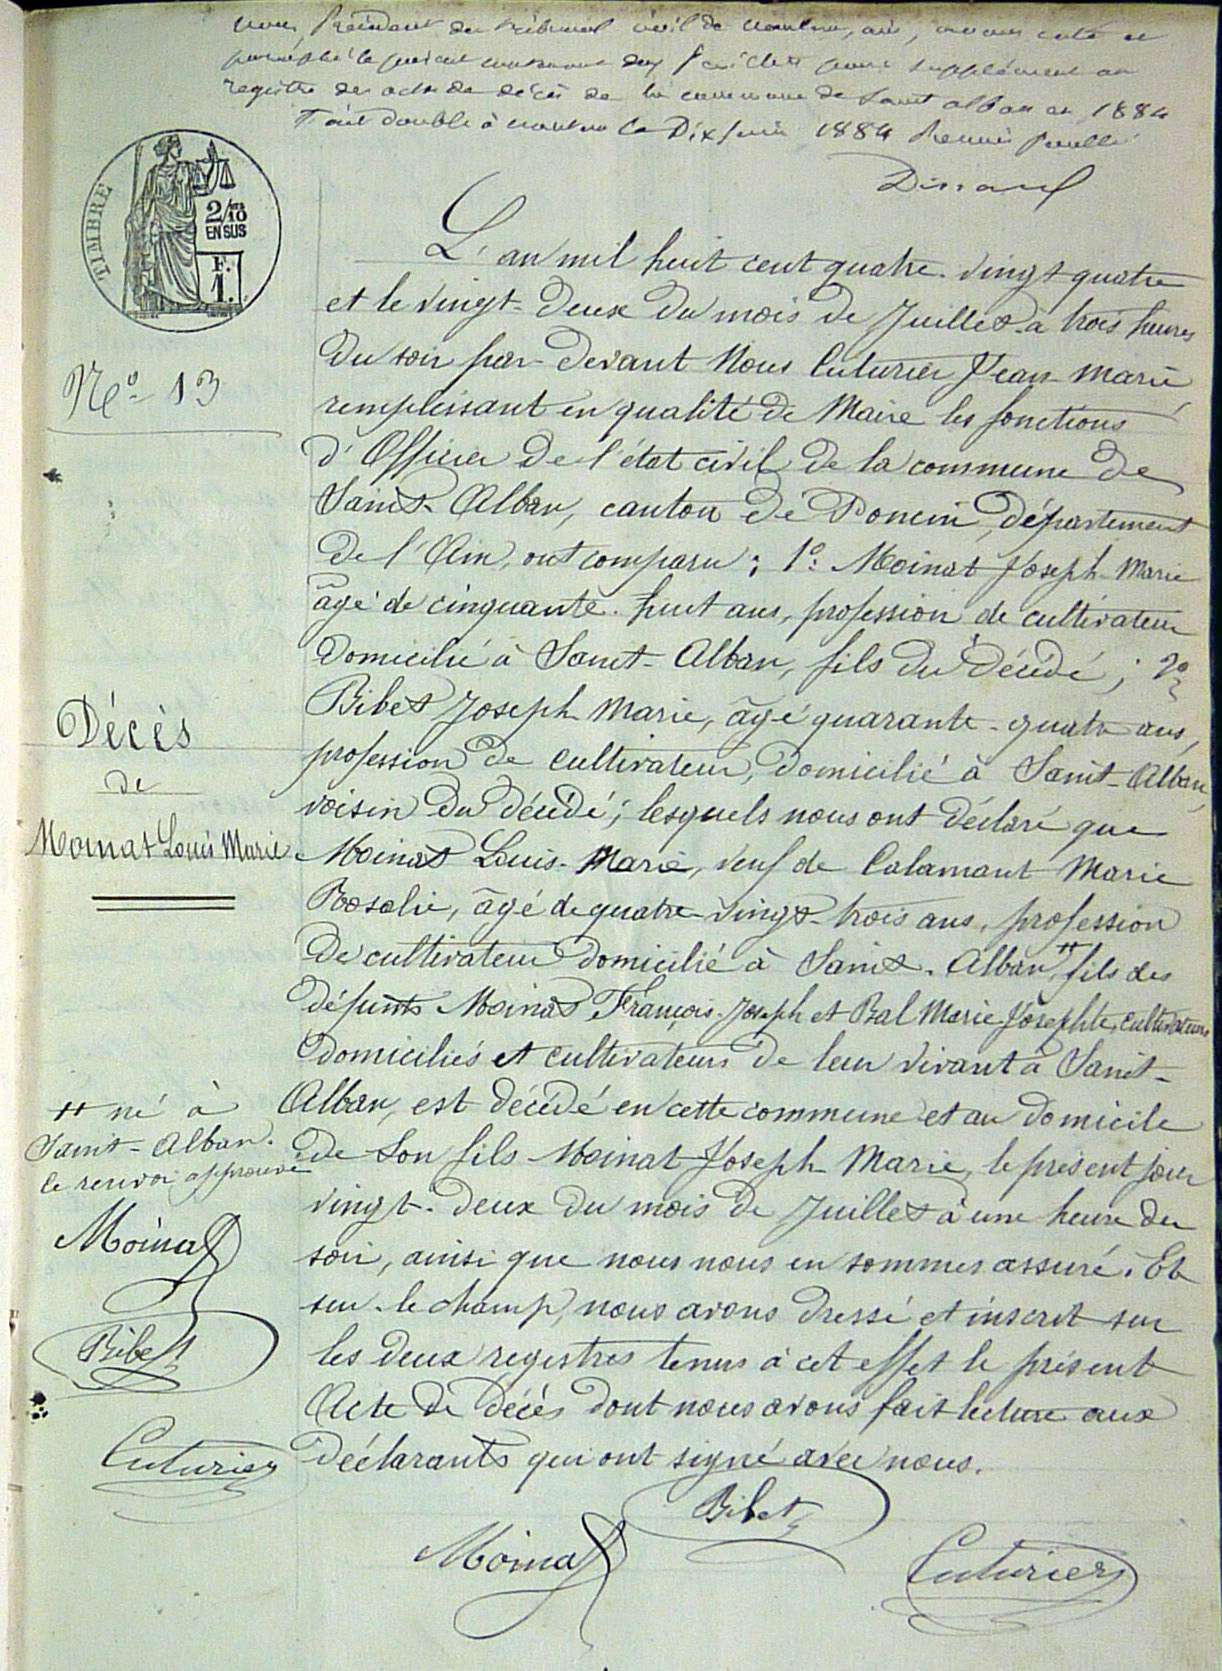 Nous Président du tribunal civil de Nantua, Ain, avons coté et
paraphé le présent contenant deux feuillets pour supplément au
registre des actes de décès de la commune de Saint Alban en 1884
Fait double à Nantua le Dix Juin 1884
TIMBRE
2/10 EN SUS
F. 1.
L'an mil huit cent quatre-vingt quatre
et le vingt-deux du mois de Juillet à trois heures
du soir par-devant Nous Cuturier Jean-Marie
remplissant en qualité de Maire les fonctions
d'Officier de l'état civil de la commune de
Saint-Alban, canton de Poncin, département
de l'Ain, ont comparu; 1º: Moinat Joseph-Marie
âgé de cinquante-huit ans, profession de cultivateur
domicilié à Saint-Alban, fils du décédé; 2º
Bibet Joseph Marie, âgé quarante-quatre ans,
profession de cultivateur, domicilié à Saint-Alban,
voisin du décédé; lesquels nous ont déclaré que
Moinat Louis-Marie, veuf de Calamant Marie
Rosalie, âgé de quatre-vingt-trois ans, profession
de cultivateur domicilié à Saint-Alban # fils des
défunts Moinat François-Joseph et Bal Marie Josephte, cultivateurs
domiciliés et cultivateurs de leur vivant à Saint-
Alban, est décédé en cette commune et au domicile
de son fils Moinat Joseph-Marie, le présent jour
vingt-deux du mois de Juillet à une heure du
soir, ainsi que nous nous en sommes assuré. Et
sur-le champ, nous avons dressé et inscrit sur
les deux registres tenus à cet effet le présent
Acte de décès dont nous avons fait lecture aux
déclarants qui ont signé avec nous.
Bibet
Moinat
Cuturier
Nº 13
Décès
de
Moinat Louis Marie
# né à
Saint-Alban.
le renvoi approuvé
Moinat
Bibet
Cuturier